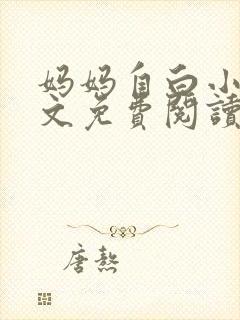 妈妈自白小
文免費閱讀
唐熬